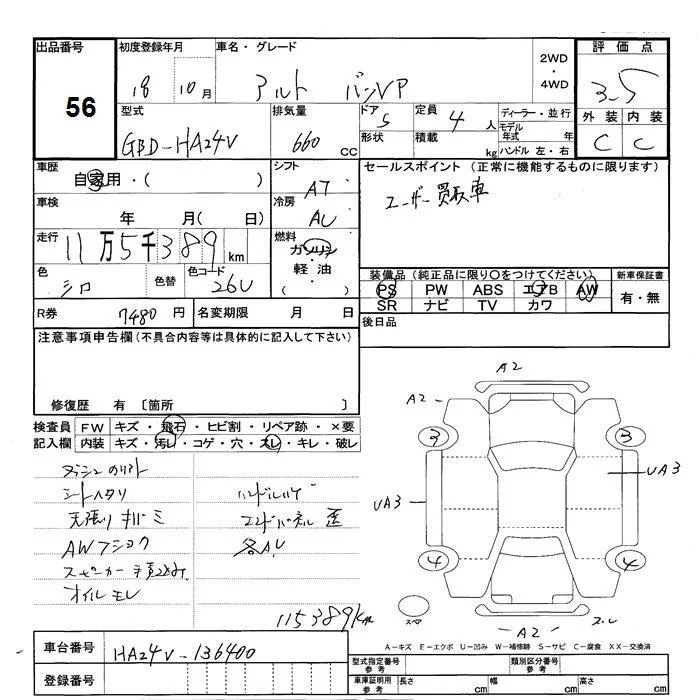 出品番号 初度登録年月 車名・グレード 2WD・4WD 評価点
56 18 10月 アルト バンVP 3.5
型式 排気量 ドア 定員 ディーラー・並行 外装 内装
GBD-HA24V 660 CC 5 4人 モデル年式 年 C C
形状 積載 kg ハンドル 左・右
車歴 自家用・( ) シフト AT セールスポイント(正常に機能するものに限ります)
ユーザー買取車
車検 年 月( 日) 冷房 AC
走行 11万5千389km 燃料 ガソリン
軽油
( )
色 シロ 色替 色コード 26U
装備品(純正品に限り○をつけてください) 新車保証書
PS PW ABS エアB AW 有・無
SR ナビ TV カワ
R券 7480円 名変期限 月 日 後日品
注意事項申告欄(不具合内容等は具体的に記入して下さい)
修復歴 有 〔箇所 〕
検査員 FW キズ・飛石・ヒビ割・リペア跡・×要
記入欄 内装 キズ・汚レ・コゲ・穴・スレ・キレ・破レ
シートヘタリ
天張り キバミ
エンドパネル 歪
各AU
オイルモレ
115389km
A2
A2
3 3
UA3
UA3
4 4
スペア
A2
スレ
A−キズ E−エクボ U−凹み W−補修跡 S−サビ C−腐食 XX−交換済
車台番号 HA24V-136400
登録番号
型式指定番号 参考 類別区分番号 参考
車庫証明用 参考 長さ cm 幅 cm 高さ cm